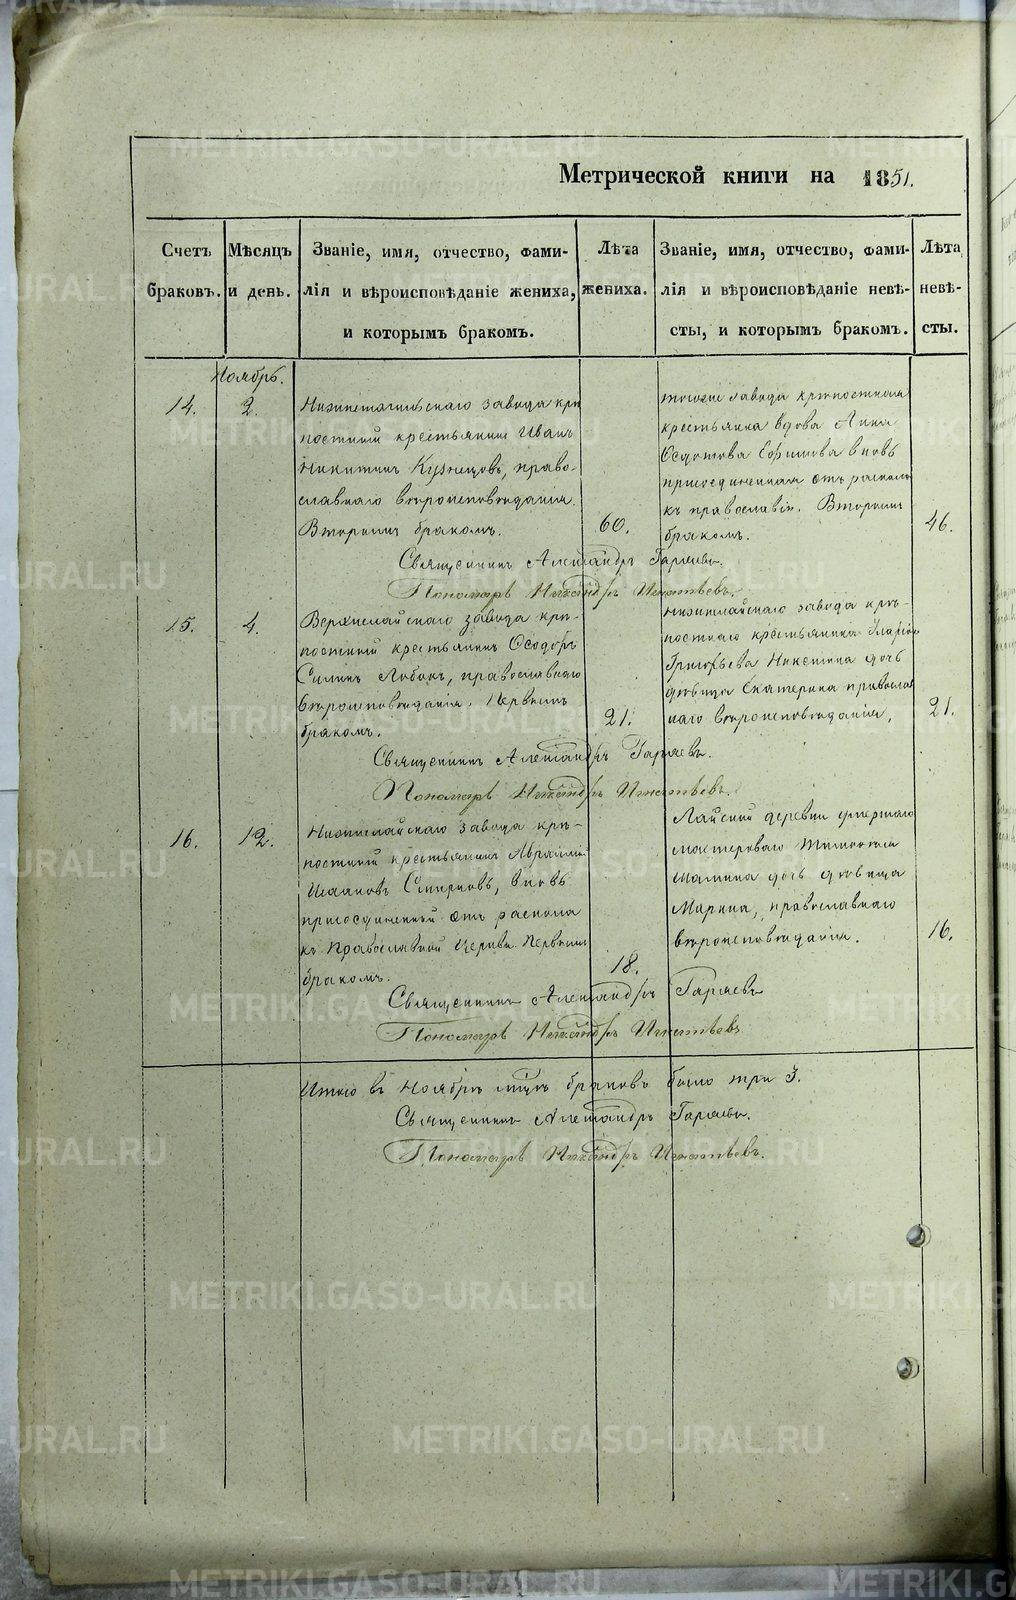 Метрической книги на 1851.
Счетъ браковъ.
Мѣсяцъ и день.
Званіе, имя, отчество, фами-
лія и вѣроисповѣданіе жениха,
и которымъ бракомъ.
Лѣта жениха.
Званіе, имя, отчество, фами-
лія и вѣроисповѣданіе невѣ-
сты, и которымъ бракомъ.
Лѣта невѣ-
сты.
Ноябрь.
14.
2.
Нижнетагильскаго завода крѣ
постный крестьянинъ Иванъ
Никитинъ Кузнецовъ, право-
славнаго вѣроисповѣданія.
Вторымъ бракомъ.
60.
тогоже завода крѣпостная
крестьянка вдова Анна
Ѳедотова Ефимова вновь
присоединенная отъ раскола
къ православію. Вторымъ
бракомъ.
46.
Священникъ Александръ Гаряевъ.
Пономарь Никандръ Игнатьевъ.
15.
4.
Верхнелайскаго завода крѣ-
постный крестьянинъ Ѳеодоръ
Силинъ Лобовъ, православнаго
вѣроисповѣданія. Первымъ
бракомъ.
21.
Нижнелайскаго завода крѣ-
постнаго крестьянина Иларіо
Григорьева Никитина дочь
дѣвица Екатерина православ
наго вѣроисповѣданія,
21.
Священникъ Александръ Гаряевъ.
Пономарь Никандръ Игнатьевъ.
16.
12.
Нижнелайскаго завода крѣ-
постный крестьянинъ Авраамій
Исааковъ Смирновъ, вновь
присоединенный отъ раскола
къ Православной Церкви Первымъ
бракомъ.
18.
Лайской деревни умершаго
мастероваго Тимофея
Малина дочь дѣвица
Марина, православнаго
вѣроисповѣданія.
16.
Священникъ Александръ Гаряевъ
Пономарь Никандръ Игнатьевъ
Итого въ Ноябрѣ мцѣ браковъ было три 3.
Священникъ Александръ Гаряевъ.
Пономарь Никандръ Игнатьевъ.
METRIKI.GASO-URAL.RU